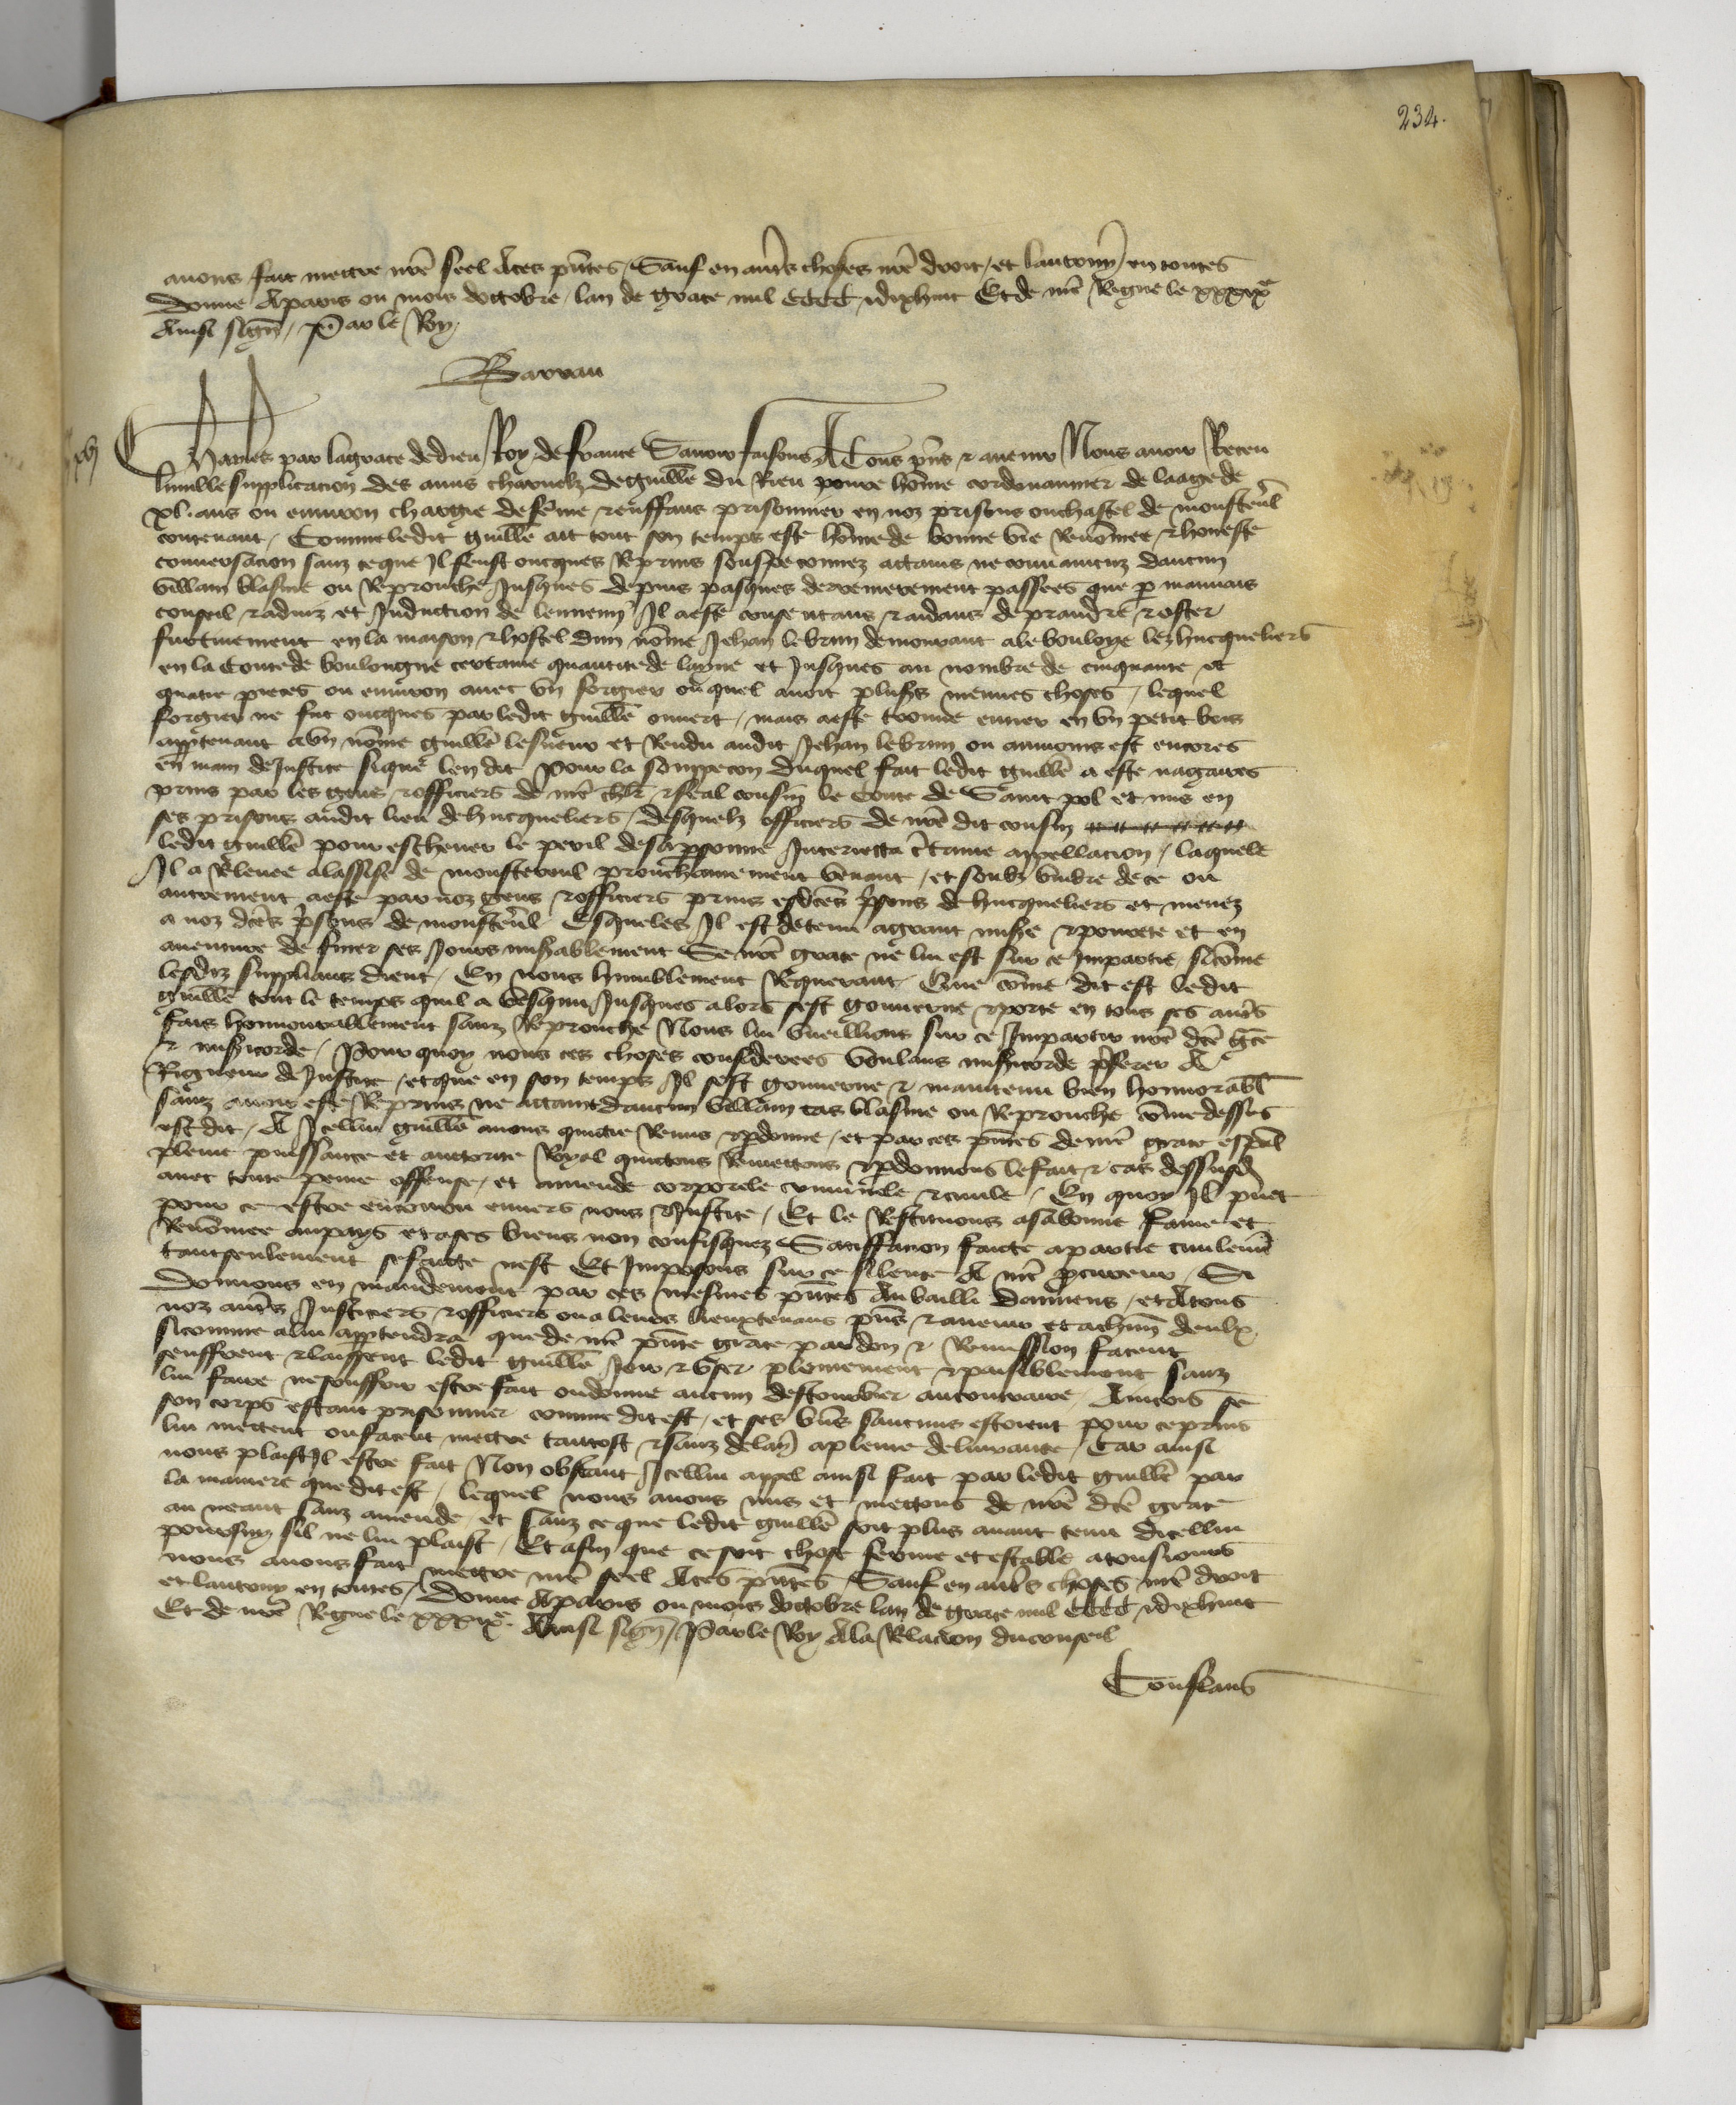 234.
auons fait mettre nr̄e seel A ces pn̄tes Sauf en aut̄s choses nr̄e droit et lautruy en toutes
Donne A paris ou mois doctobre lan de grace mil CCCC et dixhuit Et de nr̄e Regne le xxxixe
Ainsi sign̄ Par le Roy
Barrau
Charles par la grace de dieu Roy de france Sauoir faisons A Tous pn̄s & auenir Nous auoir Receu
lumble supplicacion des amis charnelz de guill̄e du Rieu poure hōme cordouannier de laage de
xl. ans ou enuiron chargie de fēme & enffans prisonnier en noz prisons ou chastel de monster̄l
contenant Comme ledit guill̄e ait tout son temps este hōme de bonne vie Renōmee & honeste
conuersacion sanz ce que Il feust oncques Reprins souspeconnez attains ne conuaincuz daucun
villain blasme ou Reprouche Jusques depuis pasques derrenierement passees que p mauuais
conseil & aduiz et Induction de lennemy Il a este consentans & aidans de prandre & oster
furtiuement en la maison & hostel dun nōme Jehan lebrun demourant a le bouloye lez hucqueliers
en la Conte de boulongne certaine quantite de layne et Jusques au nombre de cinquante et
quatre pieces ou enuiron auec vn forgier ou quel auoit plus̄s menues choses lequel
forgier ne fut oncques par ledit guill̄e ouuert mais a este trouue entier en vn petit bois
apptenant a vn nōme guill̄e lesueur et Rendu audit Jehan lebrun ou aumoins est encores
en main de Justice si que len dit Pour la souppecon duquel fait ledit guill̄e a este nagaires
prins par les gens & officiers de nr̄e ch̄r & feal cousin le Conte de Saint pol et mis en
ses prisons audit lieu de hucqueliers desquelz officiers de nr̄e dit cousin
ledit guill̄e pour escheuer le peril de sa psonne Interietta c̄taine appellacion laquele
Il a Releuee a lassise de monstereul prouchainement venant et soubz vmbre de ce ou
autrement a este par noz gens & officiers prins esd̄ces p̄sons de hucqueliers et menez
a noz d̄ces p̄sons de monster̄l Esqueles Il est detenu a grant mis̄e & pourete et en
auenture de finer ses Jours mis̄ablement Se nr̄e grace ne lui est sur ce Impartie si cōme
lesdiz supplians dient En nous humblement Requerant Que cōme dit est ledit
guill̄e tout le temps quil a vesquu Jusques alors sest gouuerne & porte en tous ses aut̄s
fais honnourablement sanz Reprouche Nous lui vueillions sur ce Impartir nr̄e d̄ce gr̄ce
& mis̄icorde Pour quoy nous ces choses considerees voulans mis̄icorde p̄ferer A
Rigueur de Justice et que en son temps Il sest gouuerne & maintenu bien honnorabl̄
sanz auoir este Reprins ne attaint daucun villain cas blasme ou Reprouche cōme dessus
est dit A Icellui guill̄e auons quictie Remis & pdonne et par ces pn̄tes de nr̄e grace esp̄al
pleine puissance et auctorite Royal quictons Remettons & pdonnons le fait & cas dessusd̄
auec toute peine offense et amende corporele criminele & ciuile En quoy Il puet
pour ce estre encouru enuers nous & Justice Et le Restituons a sa bonne fame et
Renōmee au pays et a ses biens non confisquez Satiffacion faicte a partie ciuilem̄t
tant seulement se faicte nest Et Imposons sur ce silence A nr̄e pcureur Si
Donnons en mandement par ces mesmes pn̄tes Au bailli Damiens et A tous
noz aut̄s Justiciers & officiers ou a leurs lieuxtenans pn̄s & auenir et a chun̄ deulx
si comme a lui apptendra que de nr̄e pn̄te grace pardon & Remission facent
seuffrent & laissent ledit guill̄e Jouir & vser plainement & paisiblement sanz
lui faire ne souffrir estre fait ou donne aucun destourbier au contraire Aincois se
son corps estant prisonnier comme dit est et ses bn̄s saucuns estoient pour ce prins
lui mettent ou facent mettre tantost & sanz delay a pleine deliurance Car ainsi
nous plaist Il estre fait Non obstant Icellui appel ainsi fait par ledit guill̄e par
la maniere que dit est lequel nous auons mis et mettons de nr̄e d̄ce grace
au neant sanz amende et sanz ce que ledit guill̄e soit plus auant tenu dicellui
poursuir sil ne lui plaist Et afin que ce soit chose ferme et estable a tousiours
nous auons fait mettre nr̄e seel A ces pn̄tes Sauf en aut̄s choses nr̄e droit
et lautruy en toutes Donne A paris ou mois doctobre lan de grace mil CCCC et dixhuit
Et de nr̄e Regne le xxxixe. Ainsi sign̄ Par le Roy A la Relacion du conseil
Conflans